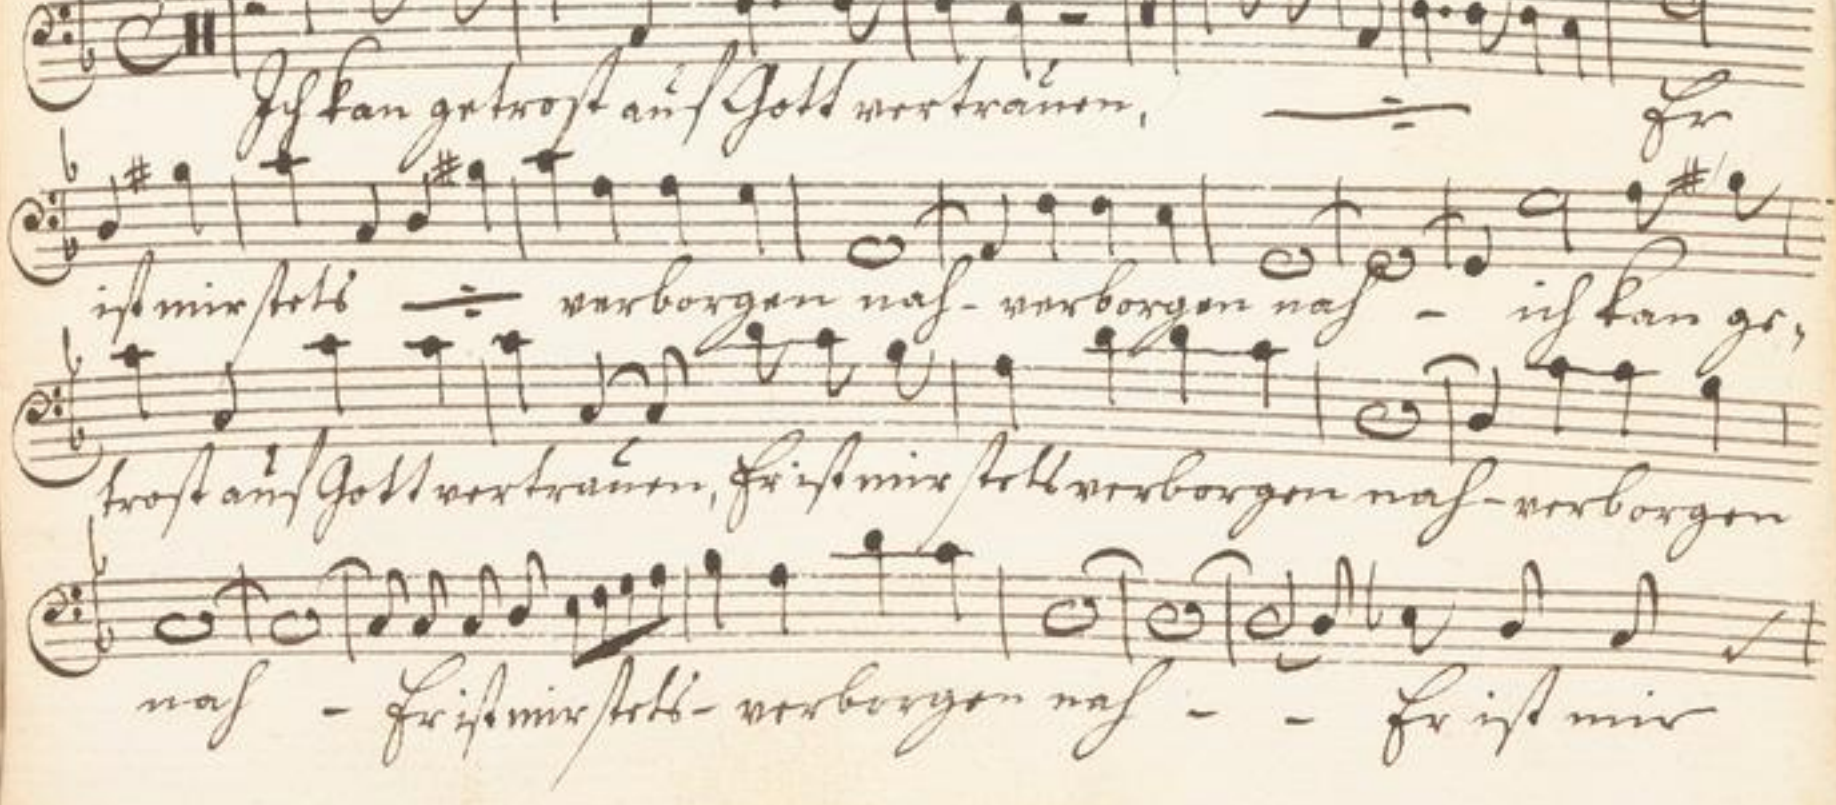 Ich kan getrost auf Gott vertrauen, Er
ist mir stets verborgen nah - verborgen nah - ich kan ge-
trost auf Gott vertrauen, Er ist mir stets verborgen nah - verborgen
nah - Er ist mir stets - verborgen nah - - Er ist mir